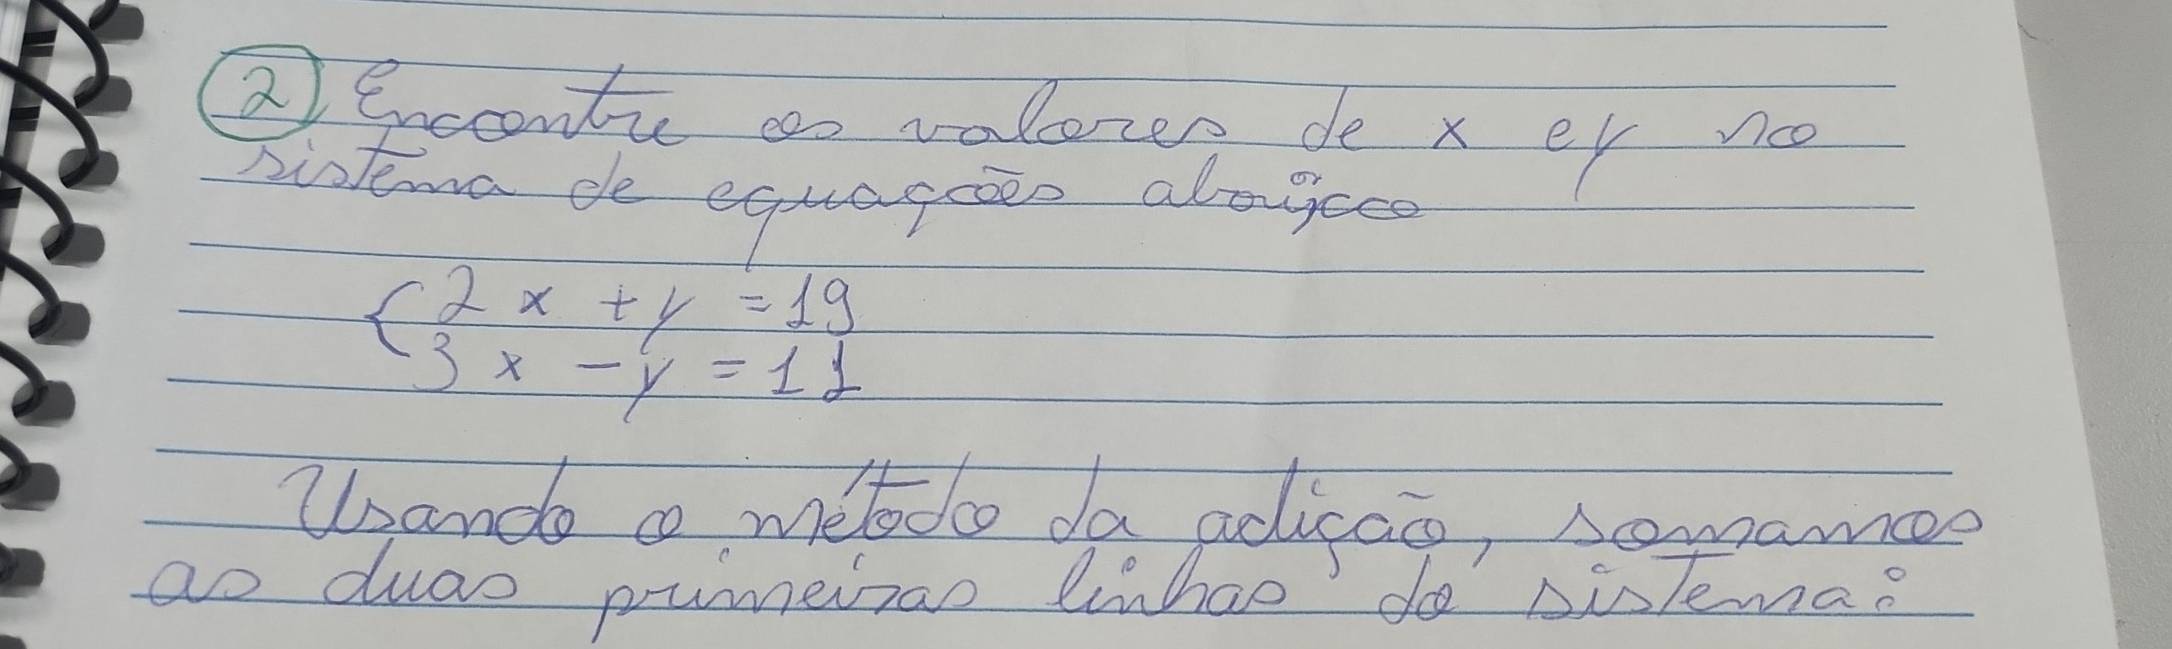 2) Encontre os valores de x e y no
sistema de equações abaixo
{2x + y = 19
3x - y = 11
Usando o método da adição, somamos
as duas primeiras linhas do sistema: